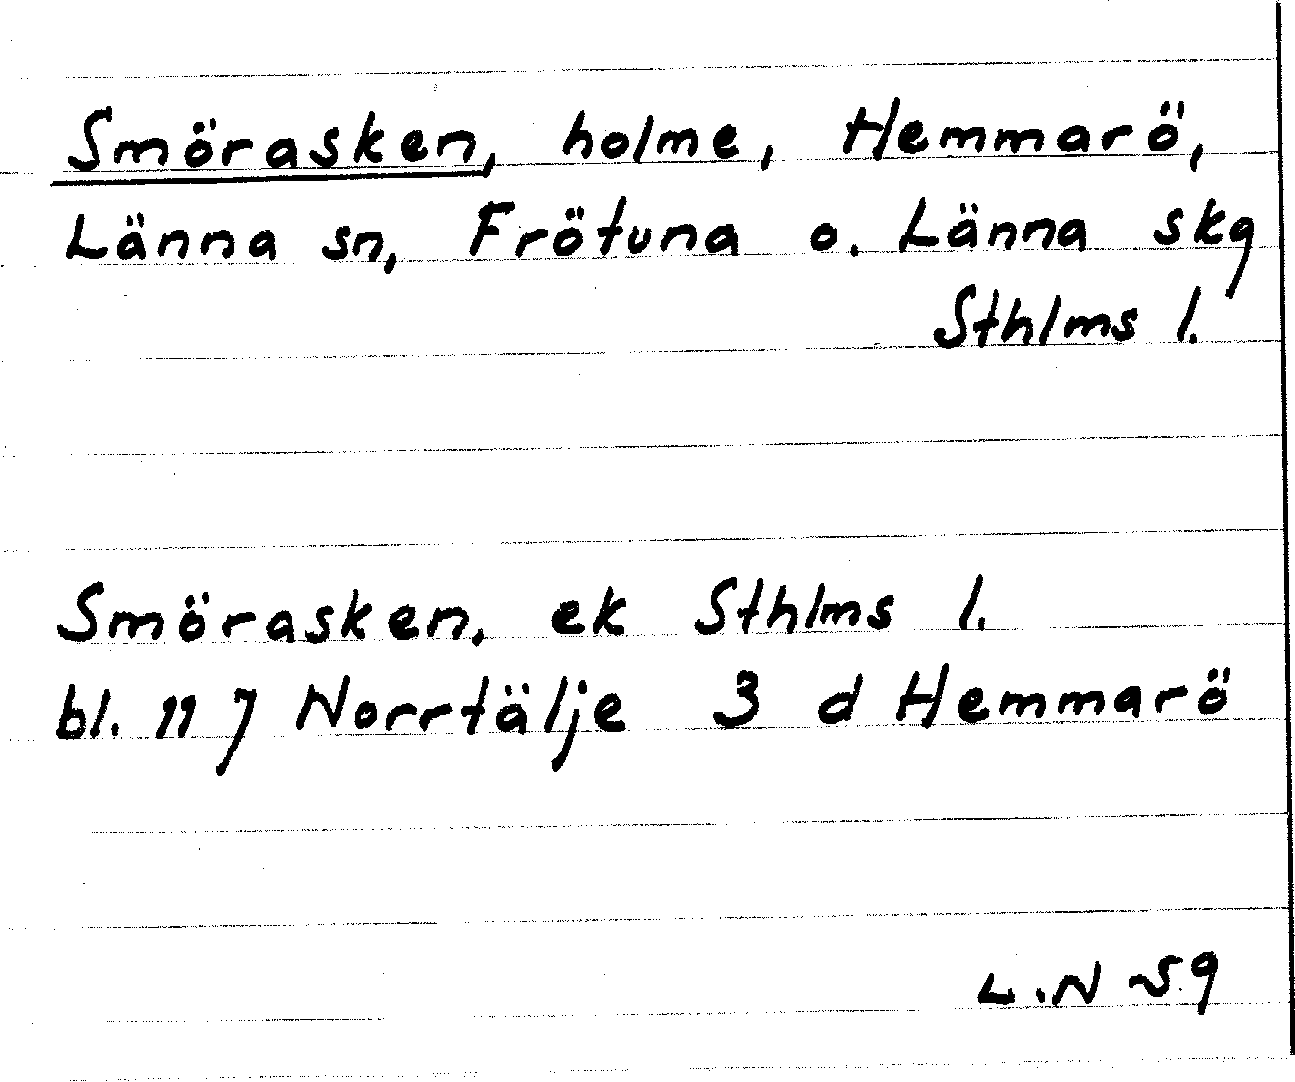 Smörasken, holme, Hemmarö,
Länna sn, Frötuna o. Länna skg
Sthlms l.
Smörasken, ek Sthlms l.
bl. 11 J Norrtälje 3 d Hemmarö
L.N 59